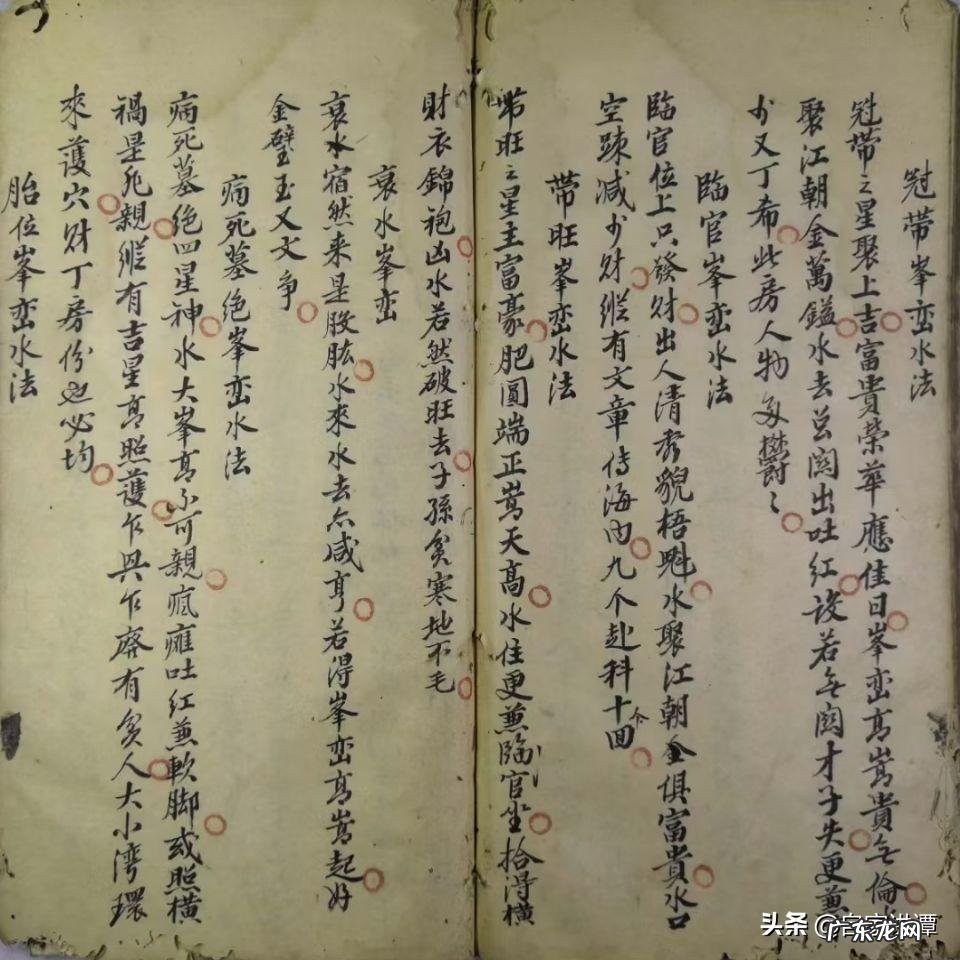 冠帶峯峦水法
冠帶之星聚上吉富貴榮華應佳日峯峦髙嵩貴无倫
聚江朝金萬鎰水去总関出吐紅設若无関才子失更兼
少又丁希此房人物多欝々
臨官峯峦水法
臨官位上只發財出人清秀貌梧魁水聚江朝金俱富貴水口
空踈减少財縦有文章侍海内九个赴科十个回
帶旺峯峦水法
帶旺之星主富豪肥圓端正嵩天髙水住更兼臨官坐拾得横
財衣錦袍凶水若然破旺去子孫貧寒地不毛
衰水峯峦
衰水宿然来是股肱水來水去亦咸亨若得峯峦髙嵩起好
金璧玉又文争
病死墓绝峯峦水法
病死墓绝四星神水大峯髙不可親瘋癱吐紅兼軟脚或照横
禍是死親縦有吉星髙照護乍興乍廢有貧人大小湾環
來護穴财丁房份也必均
胎位峯峦水法
头条 @客家洪谭
广东龙网